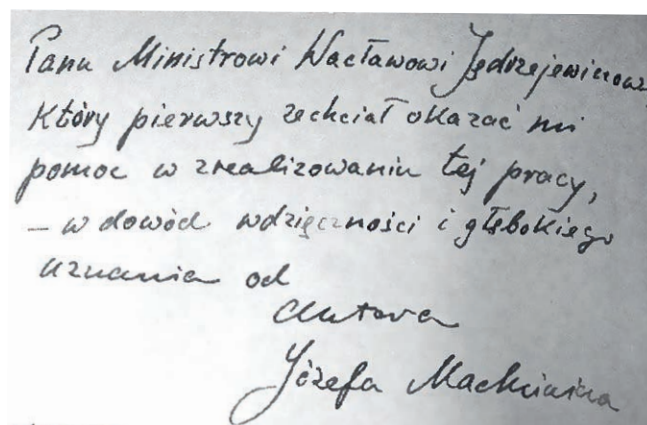 Panu Ministrowi Wacławowi Jędrzejewiczowi,
Który pierwszy zechciał okazać mi
pomoc w zrealizowaniu tej pracy,
– w dowód wdzięczności i głębokiego
uznania od
autora
Józefa Mackiewicza